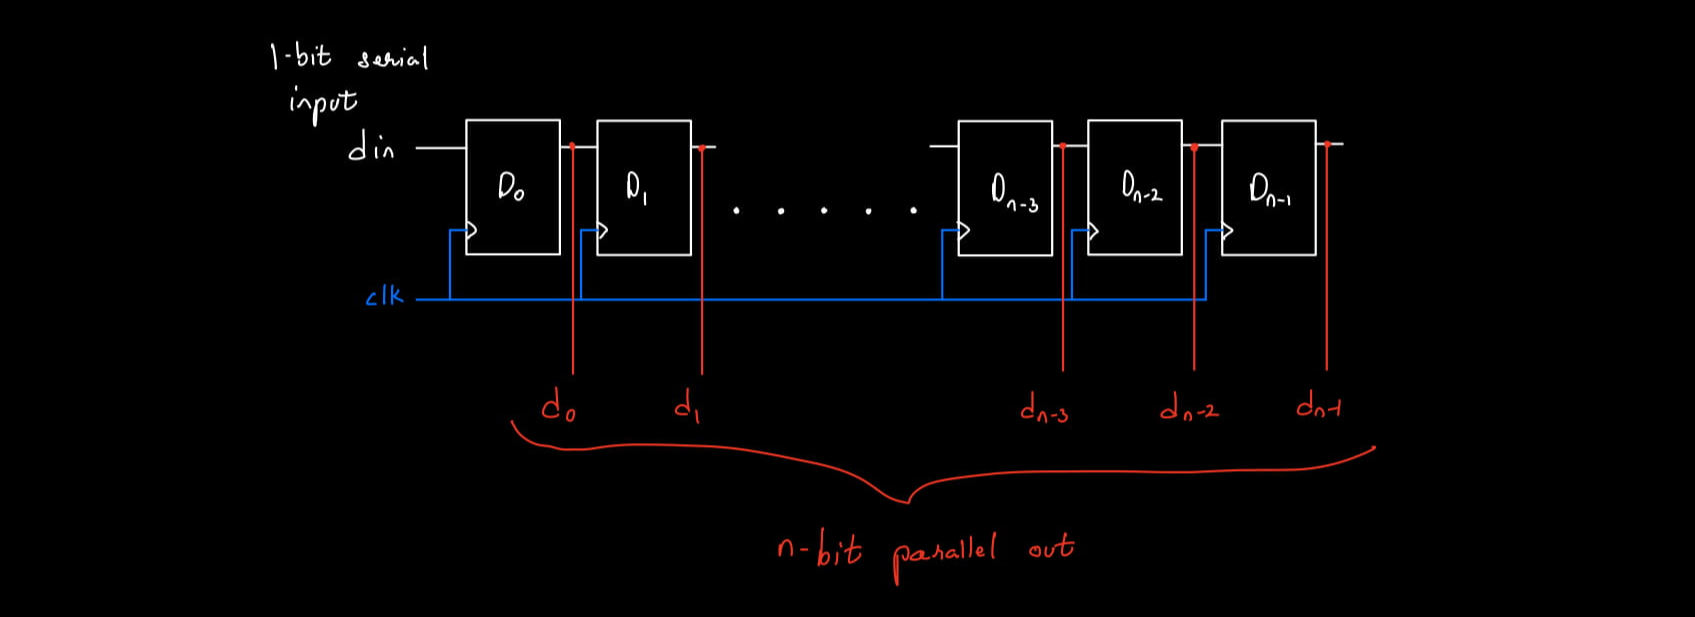 1-bit serial
input
din
D₀ D₁ Dₙ₋₃ Dₙ₋₂ Dₙ₋₁
clk
d₀ d₁ dₙ₋₃ dₙ₋₂ dₙ₋₁
n-bit parallel out